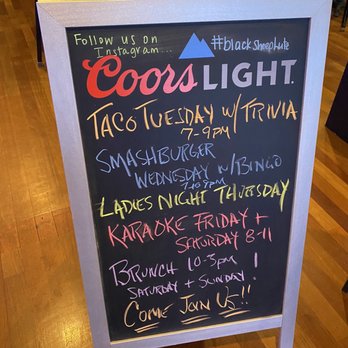 Follow us on
Instagram...
#blacksheephule
Coors LIGHT
TACO TUESDAY W/TRIVIA
7-9PM
SMASHBURGER
WEDNESDAY W/BINGO
LADIES NIGHT THURSDAY
KARAOKE FRIDAY +
SATURDAY 8-11
BRUNCH 10-3PM
SATURDAY + SUNDAY!
COME JOIN US!!